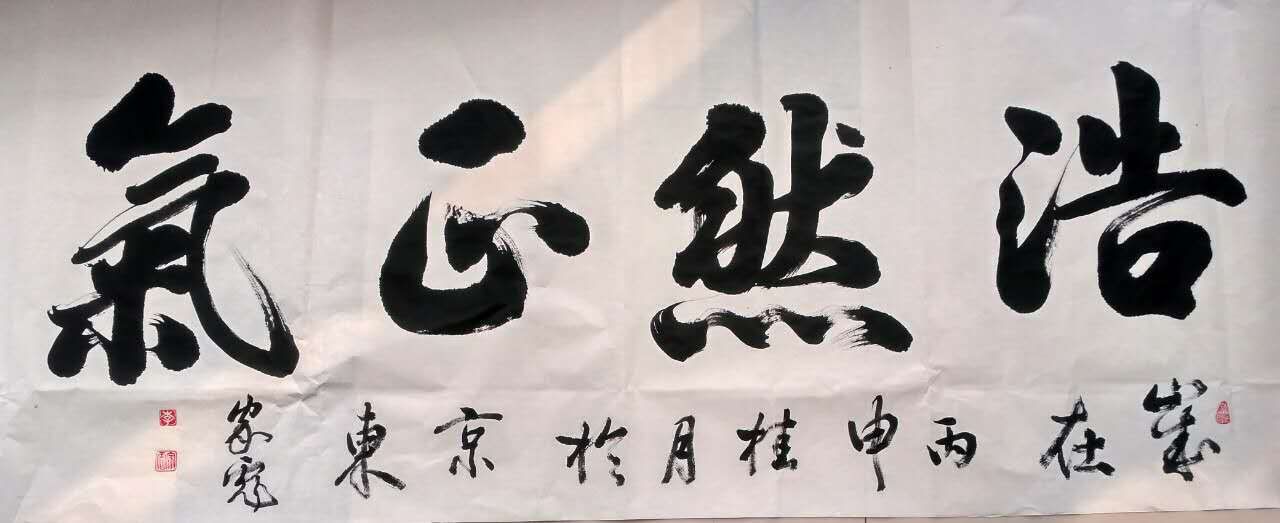 浩然正氣
歲在丙申桂月於京東